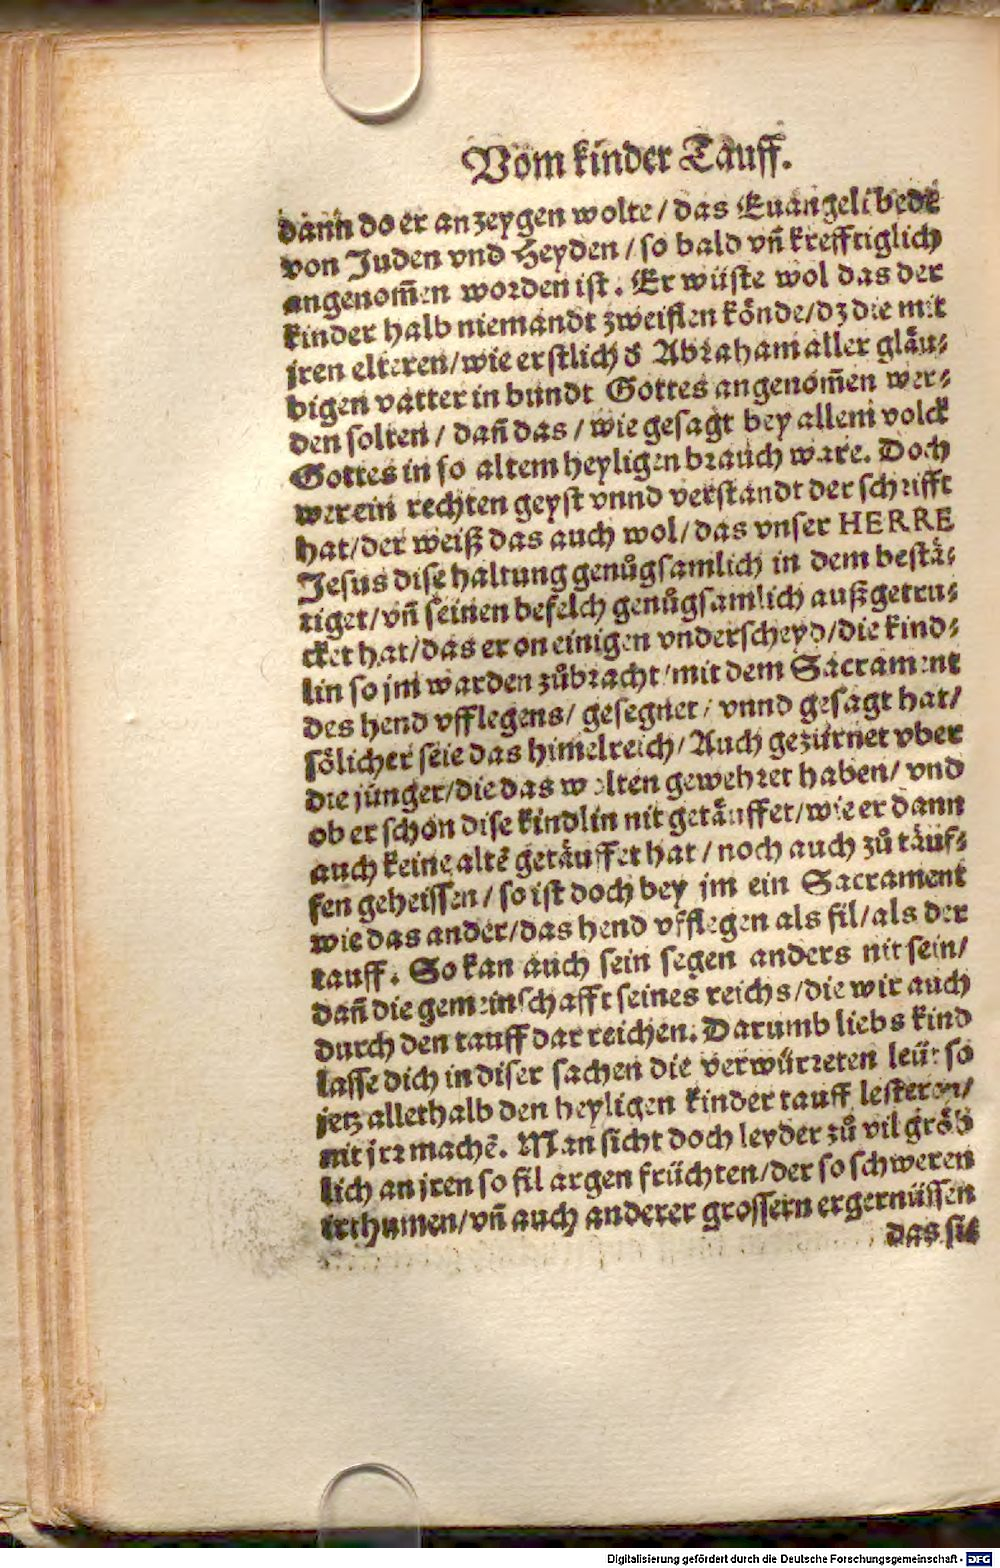 Vom kinder Tauff.
dann do er anzeygen wolte / das Euangeli bede
von Juden vnd Heyden / so bald vñ krefftiglich
angenom̃en worden ist. Er wüste wol das der
kinder halb niemandt zweiflen könde/dz die mit
jren elteren/wie erstlich d̕ Abraham aller gläu⸗
bigen vatter in bundt Gottes angenom̃en wer⸗
den solten / dañ das / wie gesagt bey allem volck
Gottes in so altem heyligen brauch ware. Doch
wer ein rechten geyst vnnd verstandt der schrifft
hat/der weiß das auch wol/das vnser HERRE
Jesus dise haltung genůgsamlich in dem bestä⸗
tiget/vñ seinen befelch genůgsamlich außgetru⸗
cket hat/das er on einigen vnderscheyd/die kind⸗
lin so jm warden zůbracht/mit dem Sacrament
des hend vfflegens/ gesegnet / vnnd gesagt hat/
sölicher seie das himelreich/Auch gezürnet vber
die jünger/die das wolten gewehret haben/ vnd
ob er schon dise kindlin nit getäuffet/wie er dann
auch keine altē getäuffet hat / noch auch zů täuf⸗
fen geheissen / so ist doch bey jm ein Sacrament
wie das ander/das hend vfflegen als fil/als der
tauff. So kan auch sein segen anders nit sein/
dañ die gemeinschafft seines reichs/die wir auch
durch den tauff dar reichen. Darumb liebs kind
lasse dich in diser sachen die verwürreten leüt so
jetz allethalb den heyligen kinder tauff lesteren/
nit jrr machē. Man sicht doch leyder zů vil gröb
lich an jren so fil argen früchten/der so schweren
irthumen/vñ auch anderer grossern ergernüssen
das sie
Digitalisierung gefördert durch die Deutsche Forschungsgemeinschaft - DFG